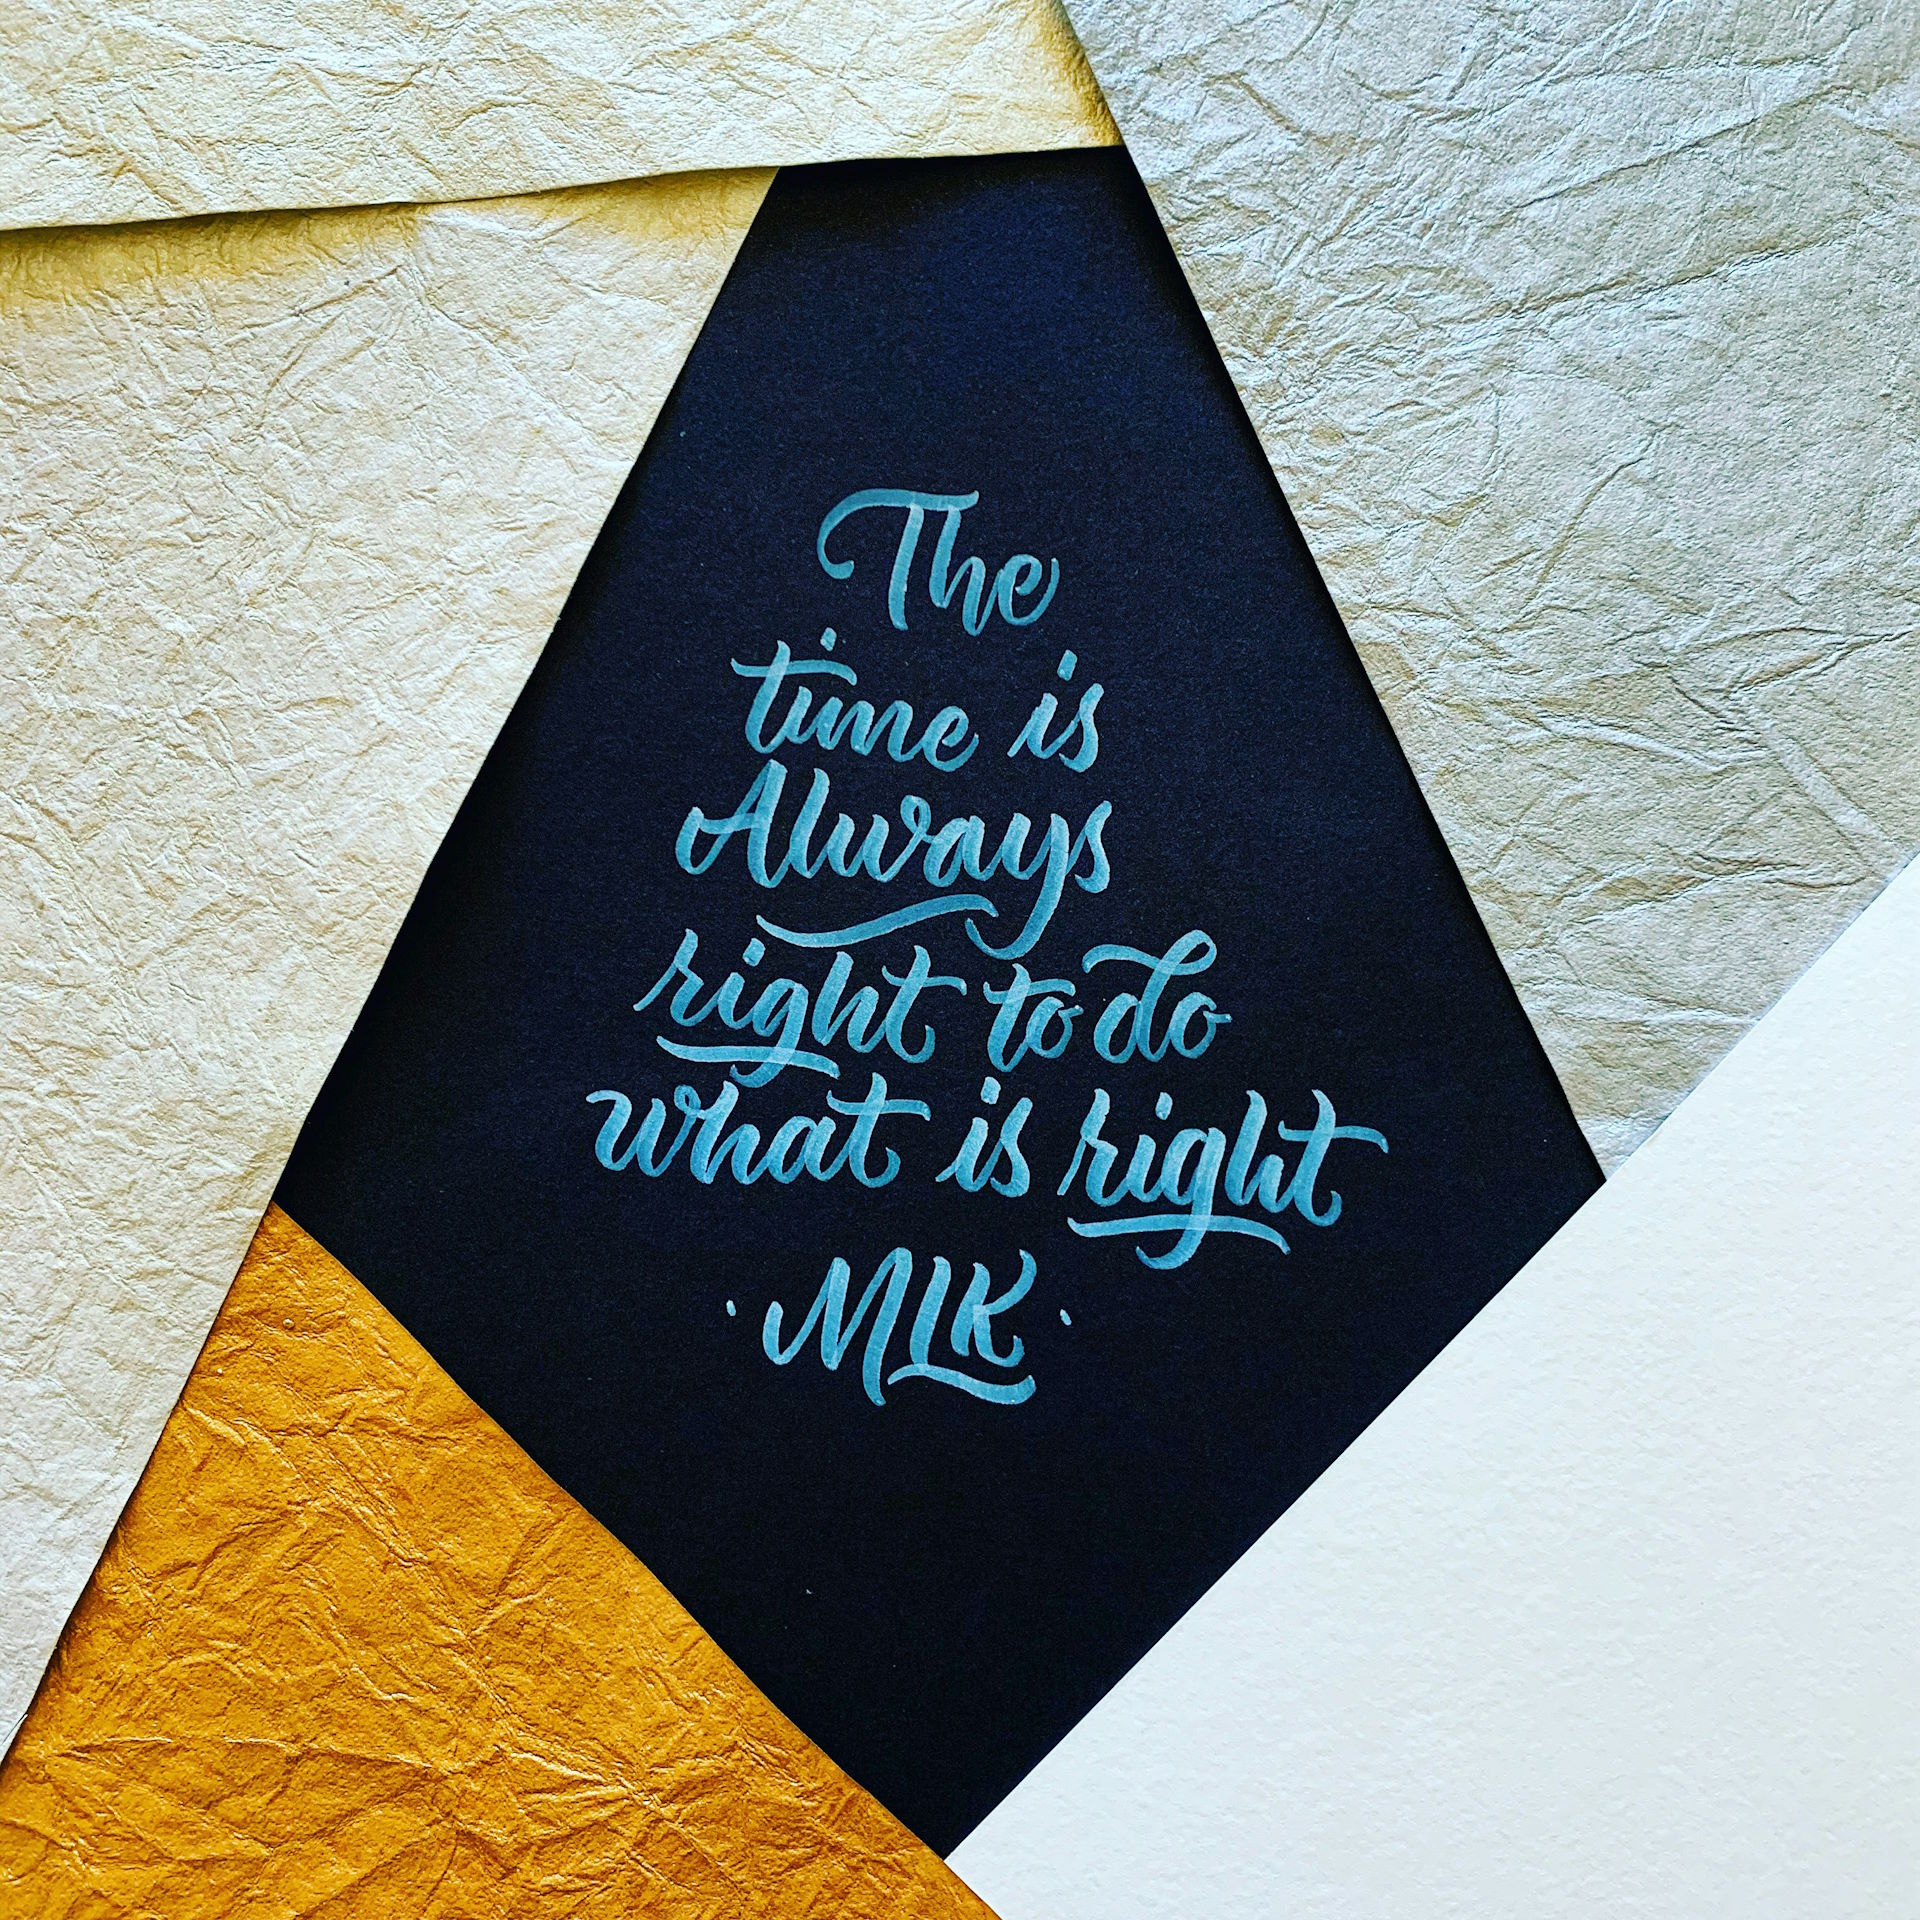 The
time is
Always
right to do
what is right
· MLK ·